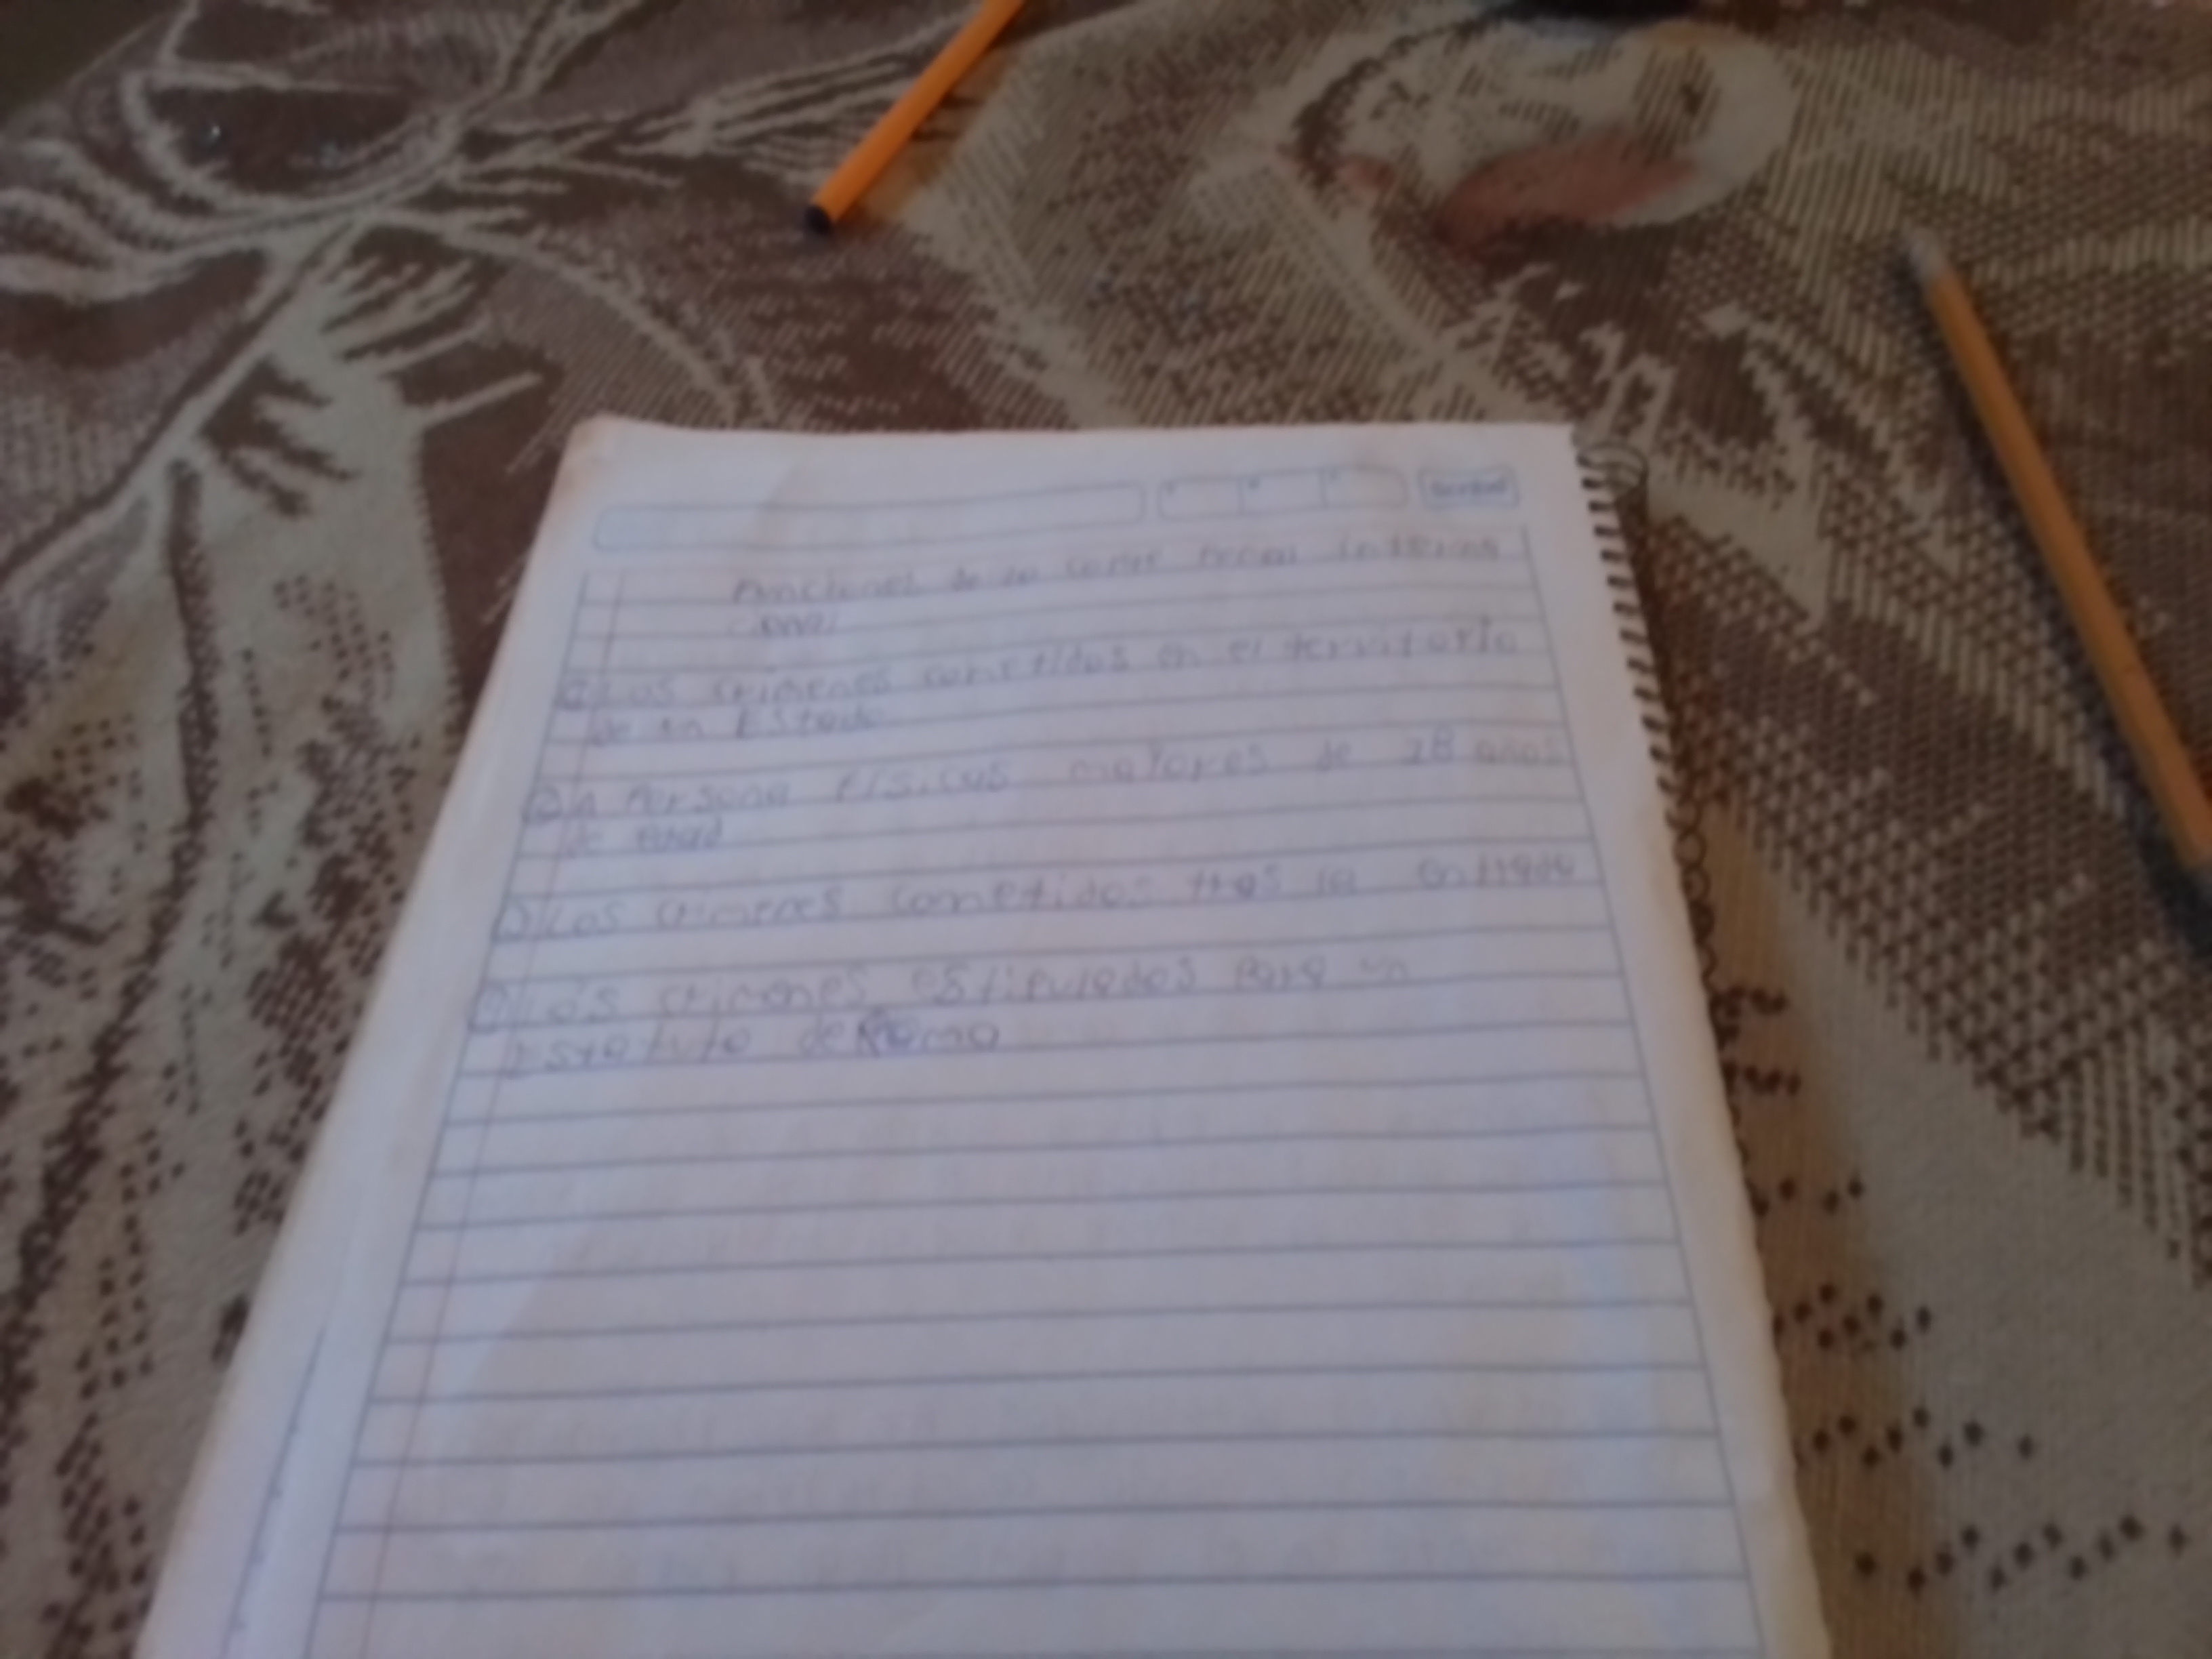 Funciones de la corte Penal interna
cional
Los crimenes cometidos en el territorio
de un Estado
A Persona Físicas mayores de 18 años
de edad
Los crimenes cometidos tras la entrada
Los crimenes estipulados para un
Estatuto de Roma